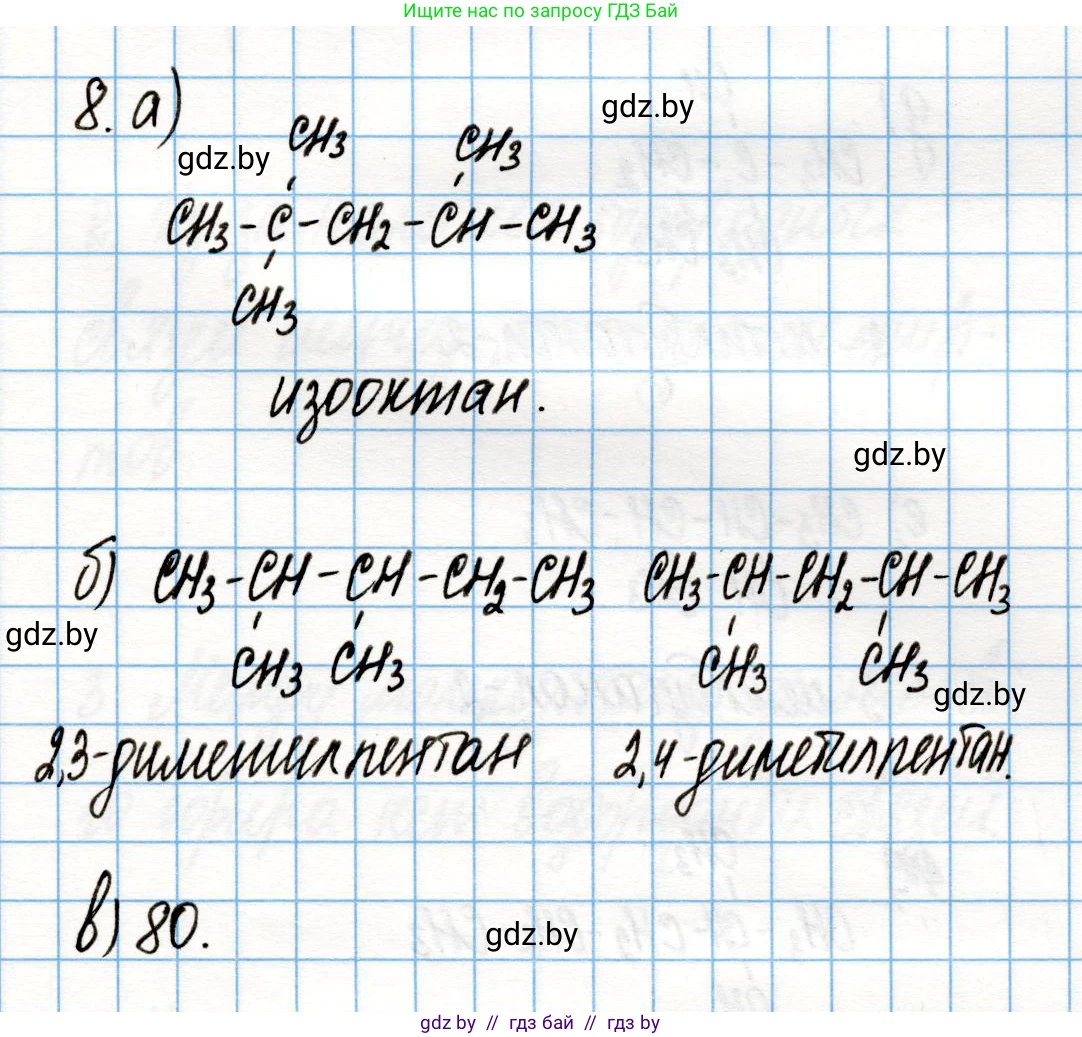 Ищите нас по запросу ГДЗ Бай
8. а)
gdz.by
CH3 CH3
gdz.by
CH3-C-CH2-CH-CH3
CH3
изооктан.
gdz.by
б) CH3-CH-CH-CH2-CH3 CH3-CH-CH2-CH-CH3
gdz.by
CH3 CH3 CH3 CH3
gdz.by
2,3-диметилпентан 2,4-диметилпентан.
в) 80.
gdz.by
gdz.by // гдз бай // гдз by